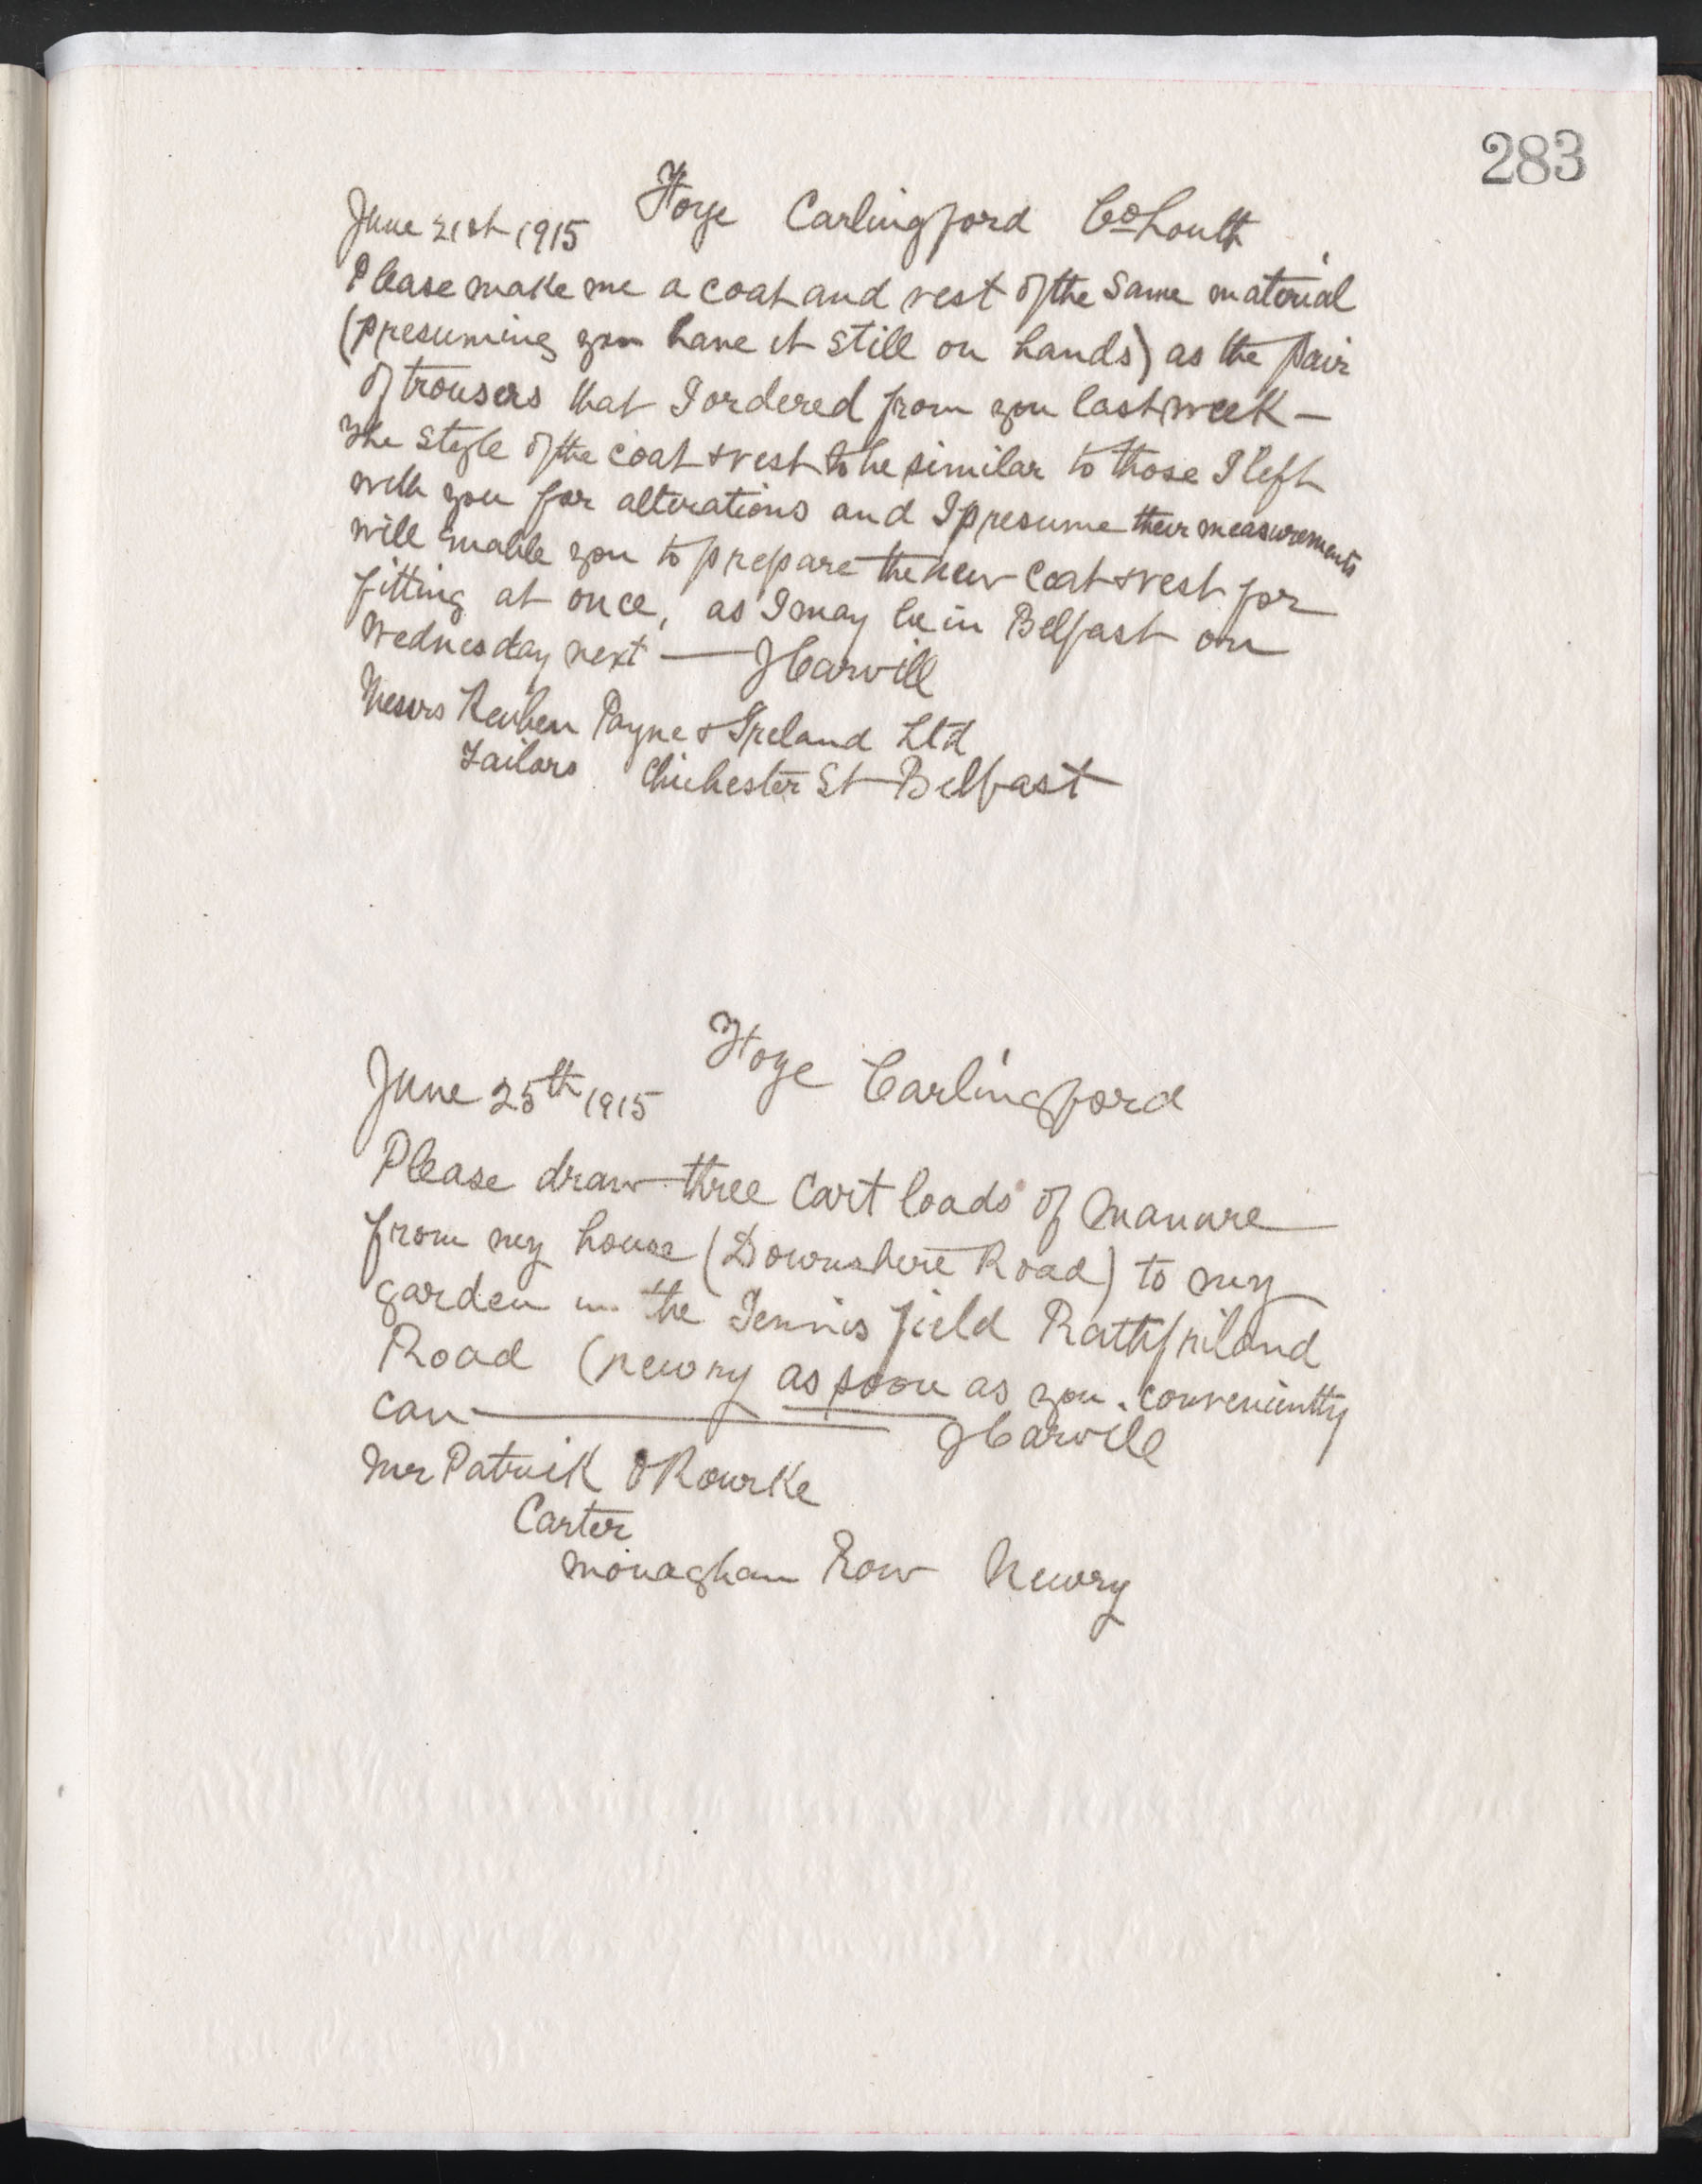 283
Foye Carlingford Co Louth
June 21st 1915
Please make me a coat and vest of the same material
(presuming you have it still on hands) as the pair
of trousers that I ordered from you last week —
The style of the coat & vest to be similar to those I left
with you for alterations and I presume their measurements
will enable you to prepare the new coat & vest for
fitting at once, as I may be in Belfast on
Wednesday next — J Carvill
Messrs Reuben Payne & Ireland Ltd
Tailors Chichester St Belfast
Foye Carlingford
June 25th 1915
Please draw three cart loads of manure
from my house (Downshire Road) to my
garden in the Tennis field Rathfriland
Road (Newry as soon as you conveniently
can — J Carvill
Mr Patrick O Rourke
Carter
Monaghan Row Newry